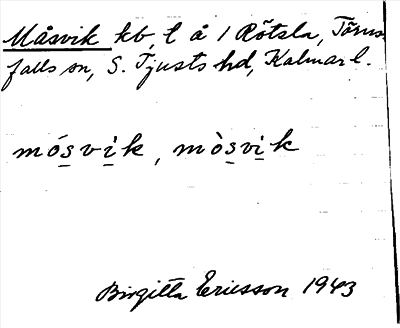 Måsvik kb, t å 1 Rötsla, Törns-
falls sn, S. Tjusts hd, Kalmar l.
mósvik, mòsvik
Birgitta Ericsson 1943